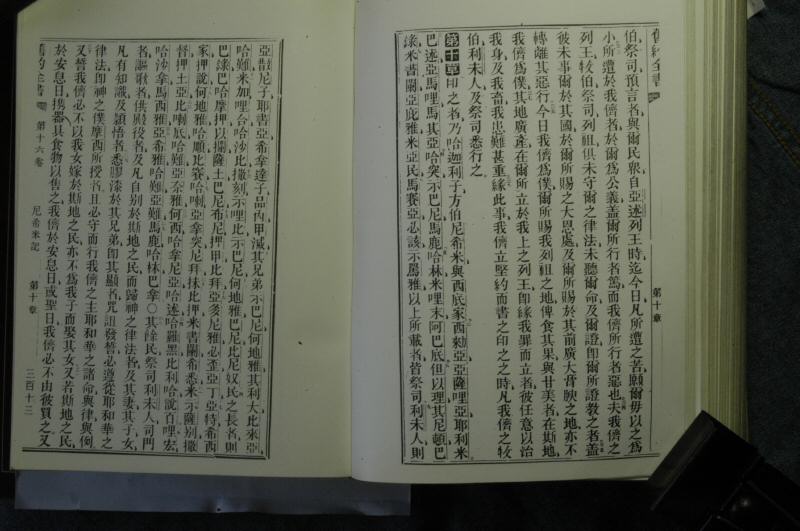 舊約全書
第十章
伯祭司預言者與爾民衆自亞述列王時迄今日凡所遭之苦願爾毋以之爲
小所遭於我儕者於爾爲公義蓋爾所行者篤而我儕所行者惡也夫我儕之
列王牧伯祭司列祖俱未守爾之律法未聽爾命及爾證即爾所證教之者蓋
彼未事爾於其國於爾所賜之大恩處及爾所賜於其前廣大膏腴之地亦不
轉離其惡行今日我儕爲僕爾所賜我列祖之地俾食其果與甘美者在斯地
我儕爲僕其地廣產在爾所立於我上之列王即緣我罪而立者彼任意以治
我身及我畜我患難甚重緣此事我儕立堅約而書之印之之時凡我儕之牧
伯利未人及祭司悉行之
第十章印之者乃哈迦利子方伯尼希米與西底家西
亞薩哩亞耶利米
巴述亞馬哩馬其亞哈突示巴尼馬鹿哈林米哩末阿巴底但以理其尼頓巴
米書闌亞庇雅米亞民馬賽亞必該示馬雅以上所載者皆祭司利未人則
亞散尼子耶書亞希拿達子品內甲減其兄弟示巴尼何地雅其利大比來亞
哈難米加哩合哈沙比撒刻示哩比示巴尼何地雅巴尼比尼奴民之長者則
巴
巴哈摩押以闌薩土巴尼布尼押甲比拜亞多尼雅必歪亞丁亞特希西
家押說何地雅哈順比賽哈喇亞拿突尼拜抹比押米書闌希悉米示薩別撒
督押土亞比喇底哈難亞奈雅何西哈拿尼亞哈述哈羅黑比利哈說百哩宏
哈沙拿馬西雅亞希雅哈難亞難馬鹿哈林巴拿○其餘民祭司利未人司門
者謳歌者供殿役者及凡自别於斯地之民而歸神之律法者及其妻其子女
凡有知識及穎悟者悉膠漆於其兄弟即其顯者咒詛發誓必遵從耶和華之
律法即神之僕摩西所授者且必守而行我儕之主耶和華之諸命與律與例
又誓我儕必不以我女嫁於斯地之民亦不爲我子而娶其女又若斯地之民
於安息日携器具食物以售之我儕於安息日或聖日我儕必不由彼買之又
舊約全書
第十六卷
尼希米記
第十章
三百十三